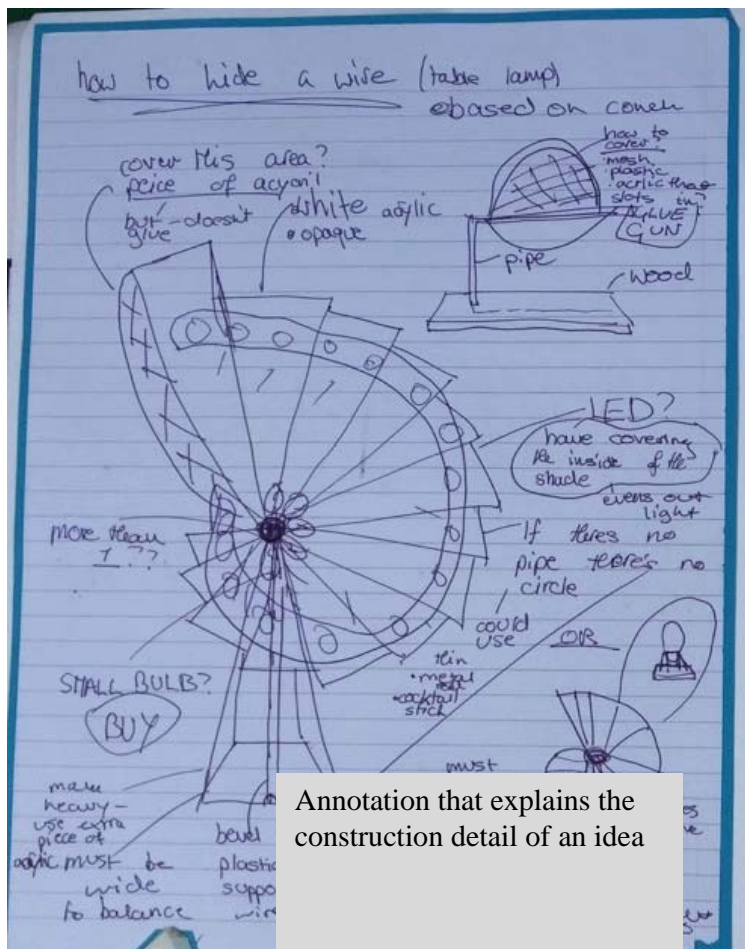 how to hide a wire (table lamp)
based on conch
cover this area?
peice of acyonil
but - doesn't
glue
white acylic
opaque
how to
cover?
mesh
plastic
acrlic that
slots in?
GLUE
GUN
pipe
wood
LED?
have covering
the inside of the
shade
evens out
light
more than
1??
If theres no
pipe there's no
circle
could
use
thin
metal
cocktail
stick
OR
SMALL BULB?
BUY
make
heavy-
use extra
piece of
must be
wide
to balance
bevel
plastic
suppo
wir
must
Annotation that explains the
construction detail of an idea